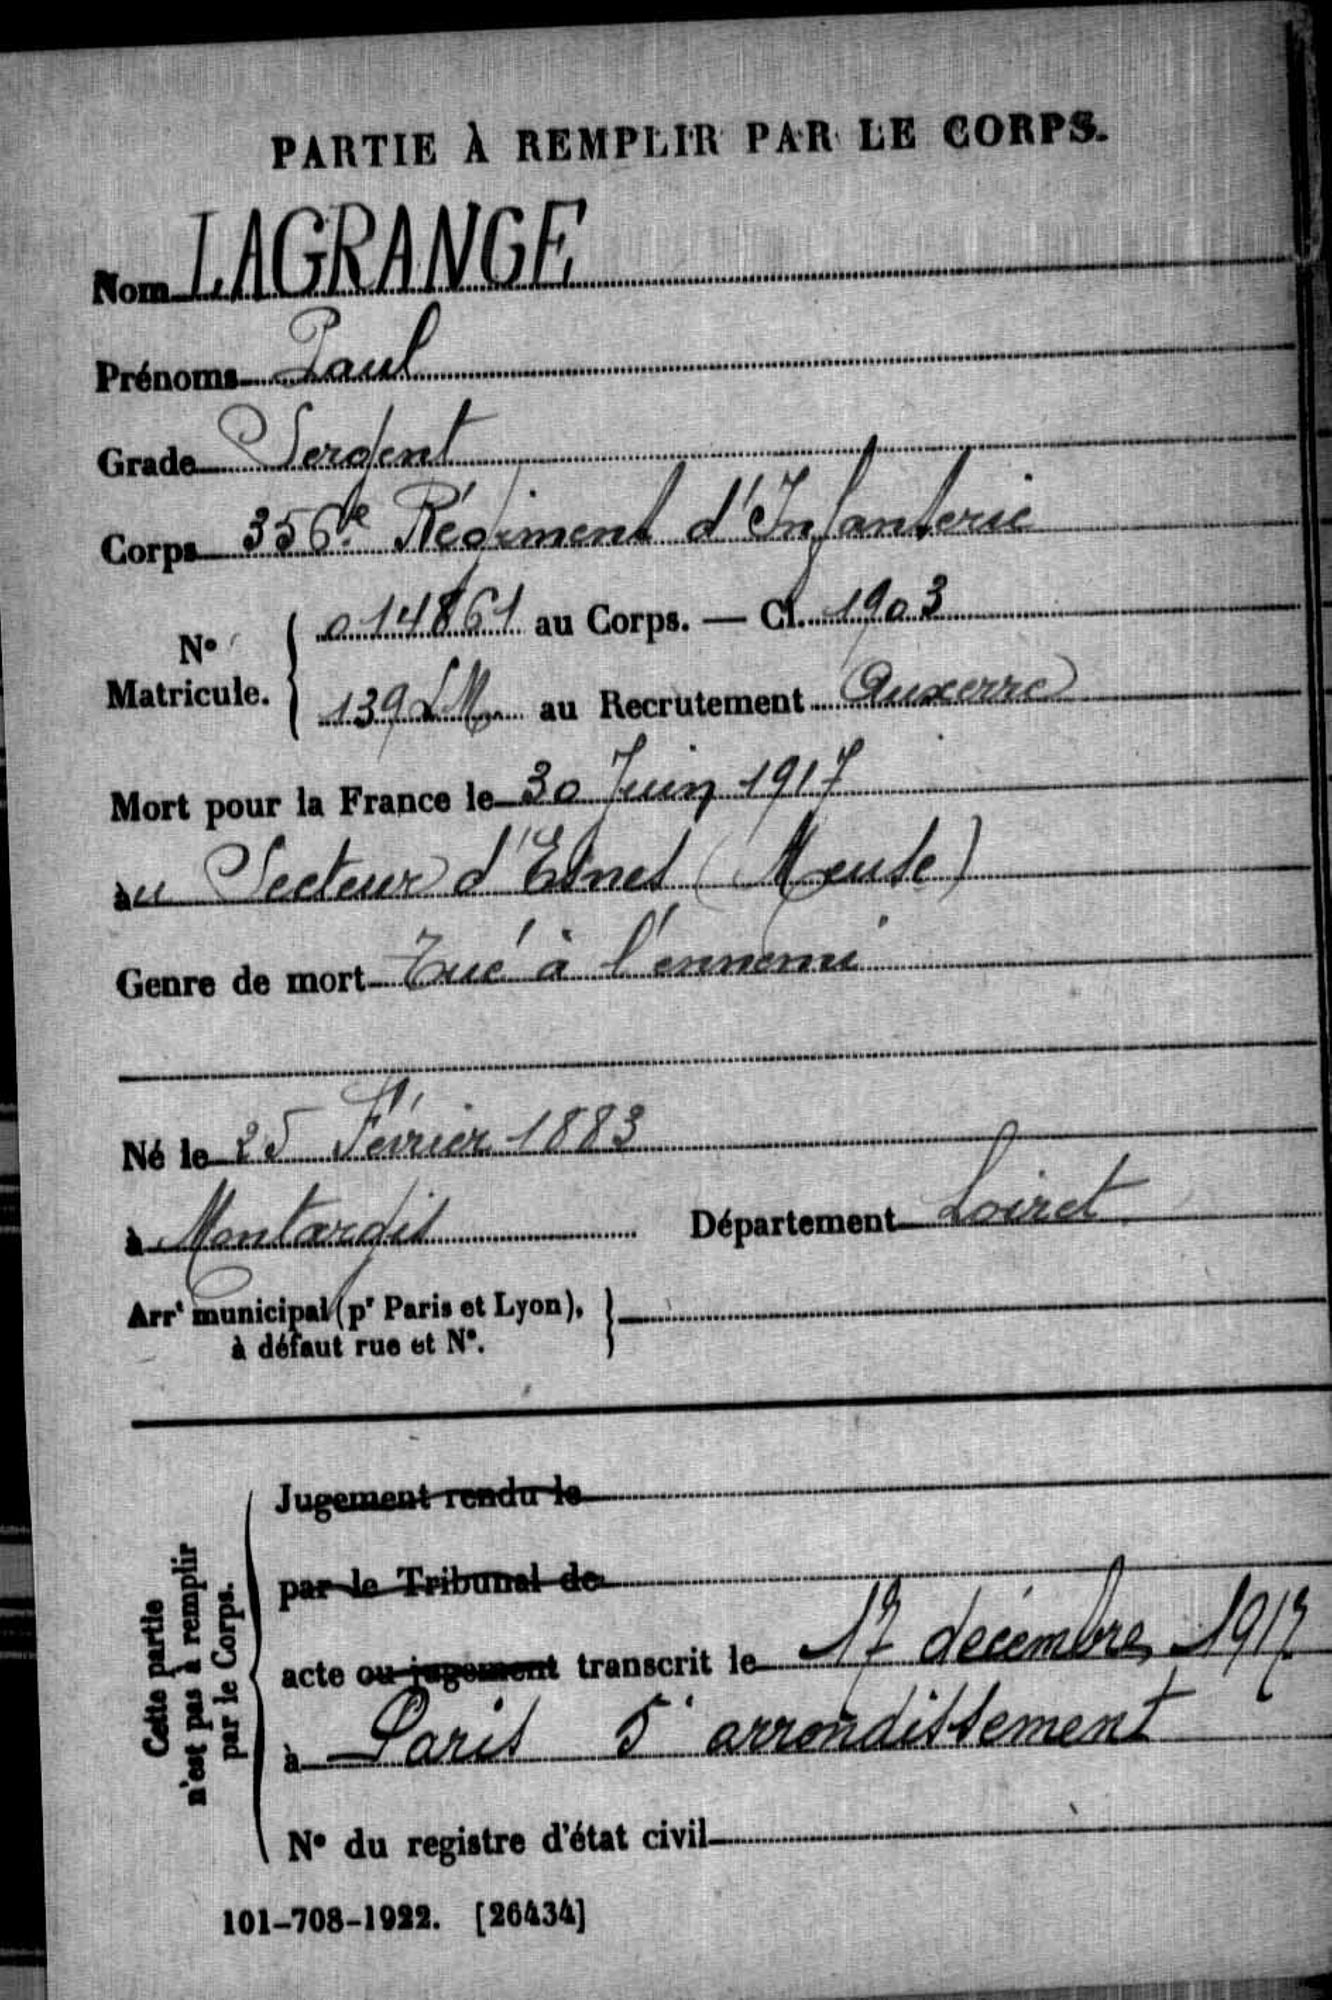 PARTIE À REMPLIR PAR LE CORPS.
Nom LAGRANGE
Prénoms Paul
Grade Sergent
Corps 356e Régiment d'Infanterie
N° Matricule. 014861 au Corps. — Cl. 1903
139 LM au Recrutement Auxerre
Mort pour la France le 30 Juin 1917
au Secteur d'Esnes (Meuse)
Genre de mort Tué à l'ennemi
Né le 25 Février 1883
à Montargis Département Loiret
Arrt municipal (pr Paris et Lyon),
à défaut rue et N°.
Cette partie
n'est pas à remplir
par le Corps.
Jugement rendu le
par le Tribunal de
acte ou jugement transcrit le 17 décembre 1917
à Paris 5e arrondissement
N° du registre d'état civil
101-708-1922. [26434]